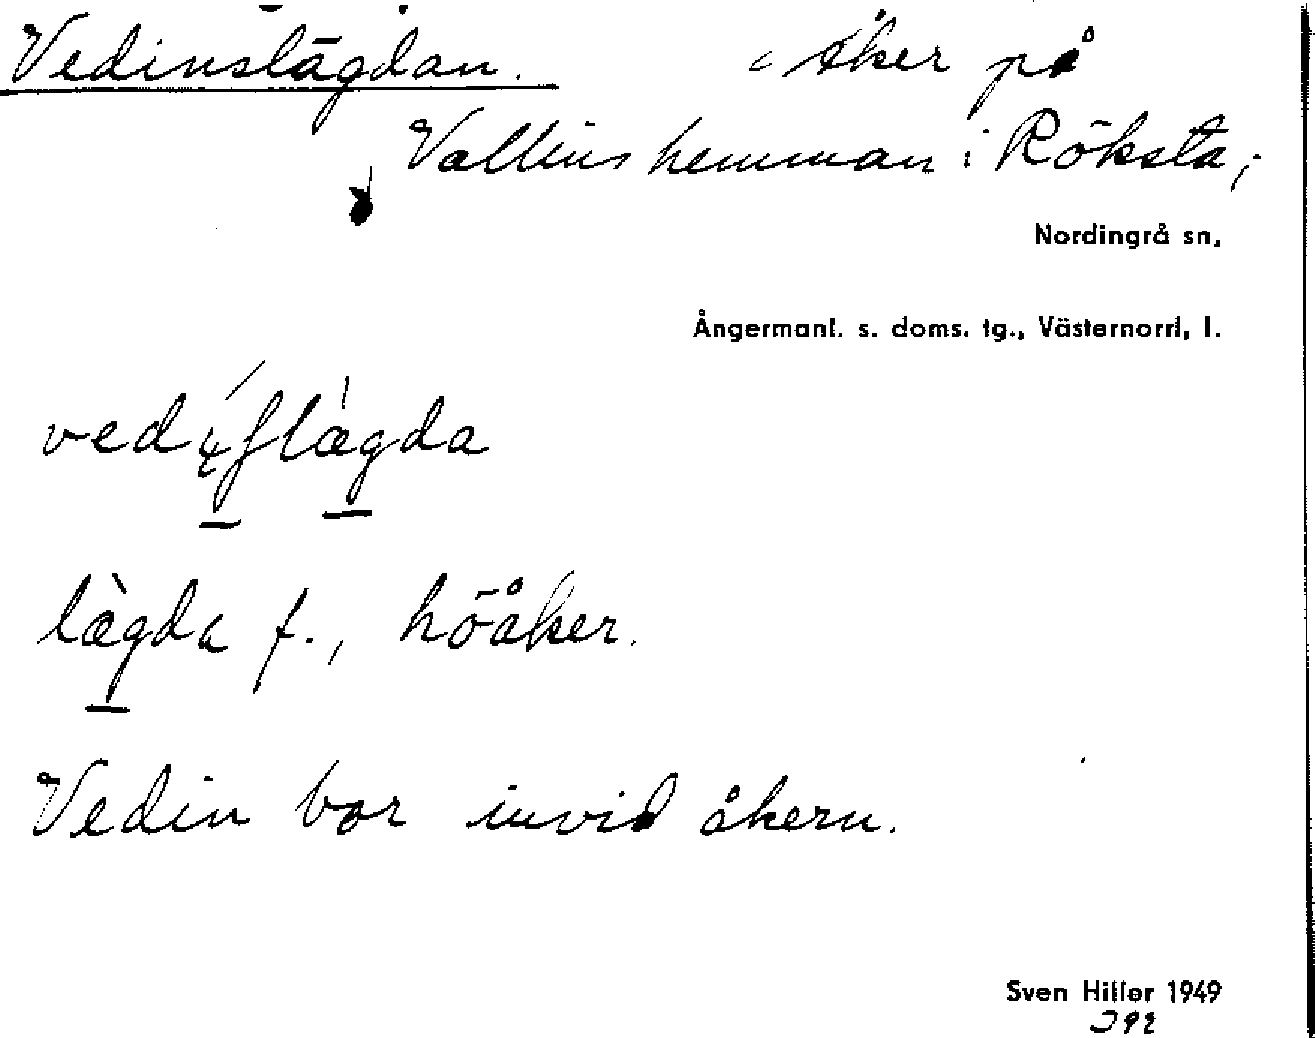 Vedinslägdan. åker på
Vallins hemman i Röksta,
Nordingrå sn,
Ångermanl. s. doms. tg., Västernorrl, l.
lægda f., höåker.
Vedin bor invid åkern.
Sven Hiller 1949